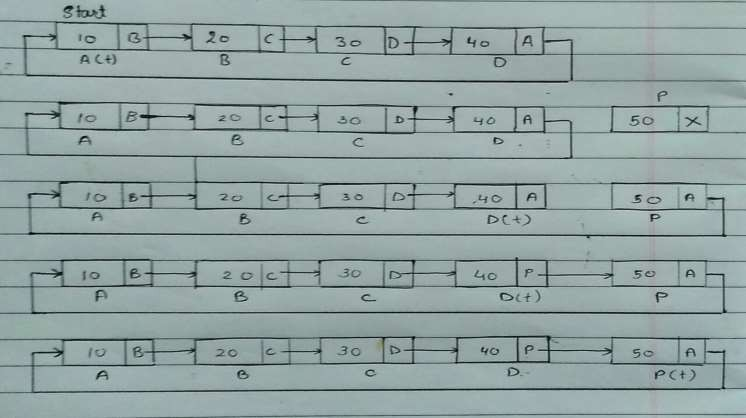 Start
10 B 20 C 30 D 40 A
A(t) B C D
P
10 B 20 C 30 D 40 A 50 X
A B C D
10 B 20 C 30 D 40 A 50 A
A B C D(t) P
10 B 20 C 30 D 40 P 50 A
A B C D(t) P
10 B 20 C 30 D 40 P 50 A
A B C D P(t)